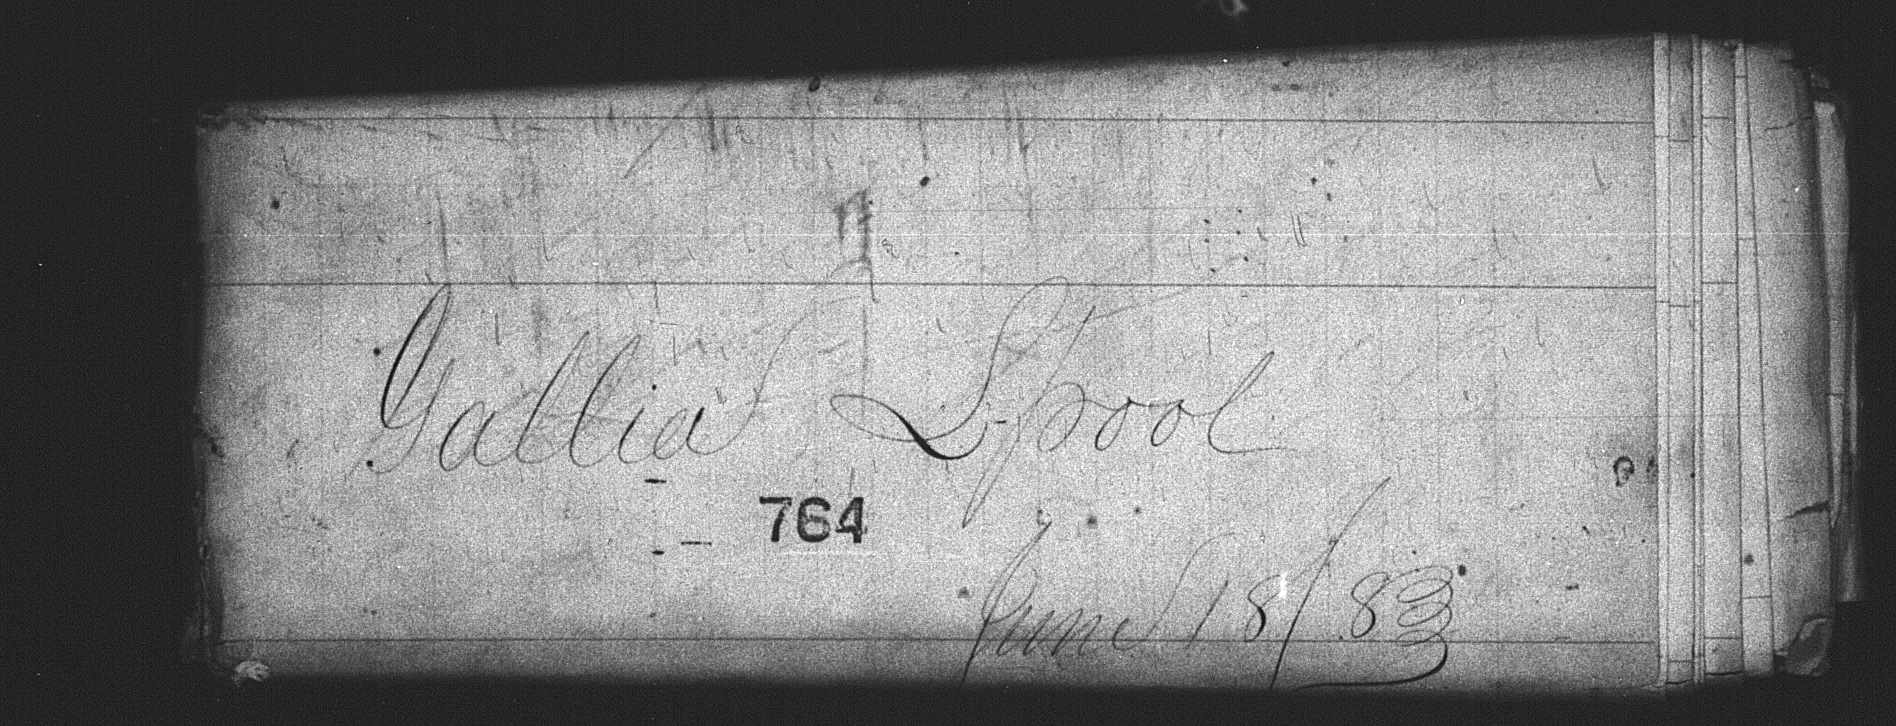 Gallia L-pool
764
June 18/83